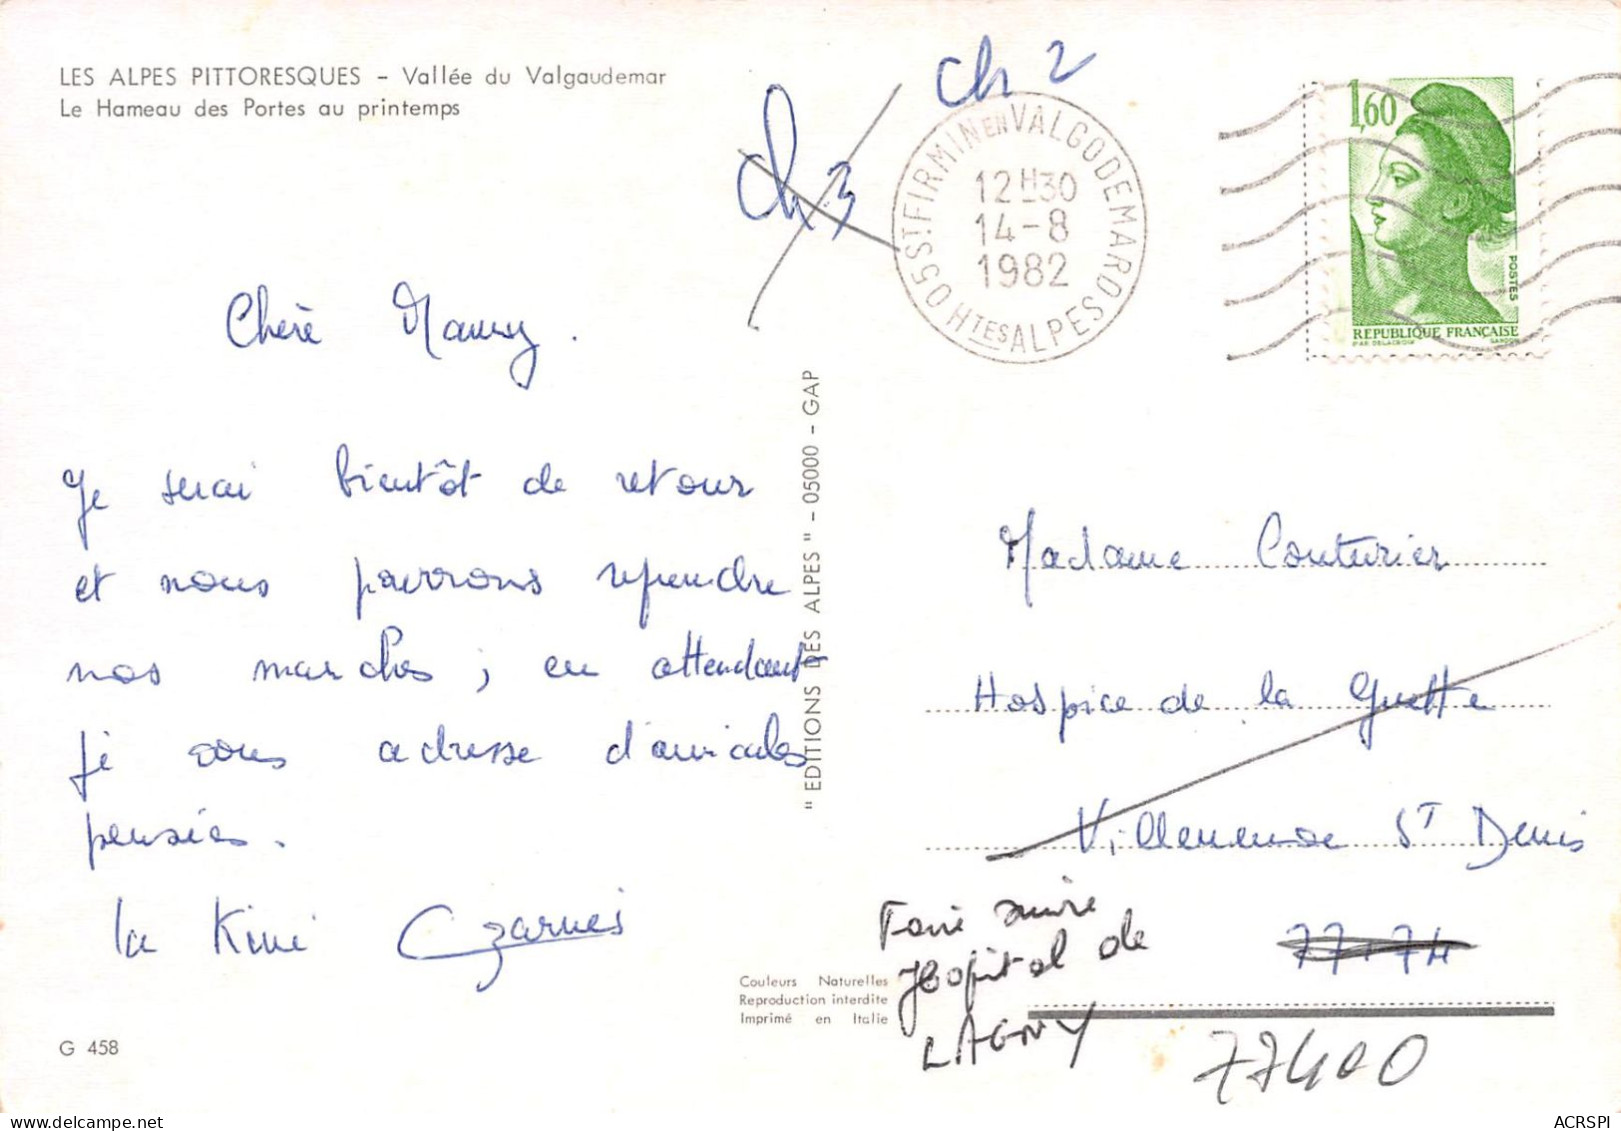 LES ALPES PITTORESQUES - Vallée du Valgaudemar
Le Hameau des Portes au printemps
Ch 3
Ch 2
05 ST FIRMIN EN VALGODEMARD
HTES ALPES
12H30
14-8
1982
1,60
POSTES
REPUBLIQUE FRANÇAISE
D'AP. DELACROIX GANDON
Chère
Je serai bientôt de retour
et nous pourrons reprendre
nos marches ; en attendant
je vous adresse d'amicales
pensées.
la Kiné
"EDITIONS DES ALPES" - 05000 - GAP
Madame Couturier
Hospice de la Guette
Villeneuve ST Denis
77174
Faire suivre
Hopital de
LAGNY
77400
Couleurs Naturelles
Reproduction interdite
Imprimé en Italie
G 458
ACRSPI